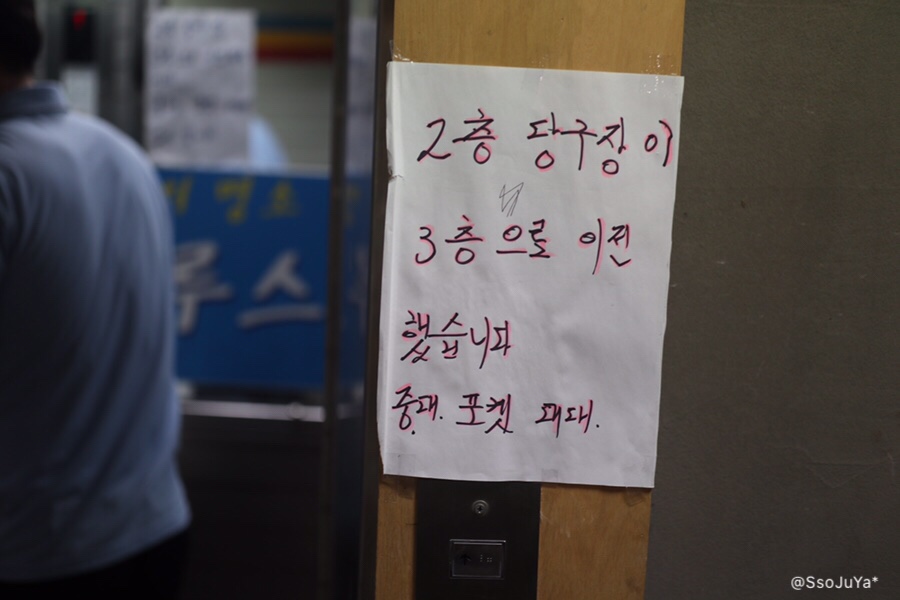 2층 당구장이
3층으로 이전
했습니다
중대. 포켓 대대.
루스
@SsoJuYa*